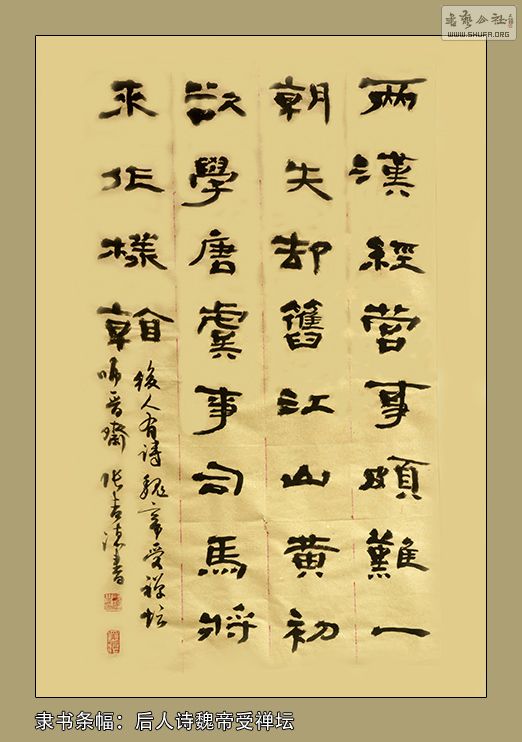 書藝公社
WWW.SHUFA.ORG
兩漢經營事頗難一
朝失却舊江山黄初
欲學唐虞事司馬將
來作樣看
後人有詩魏帝受禅坛
晋齋
書
隶书条幅：后人诗魏帝受禅坛